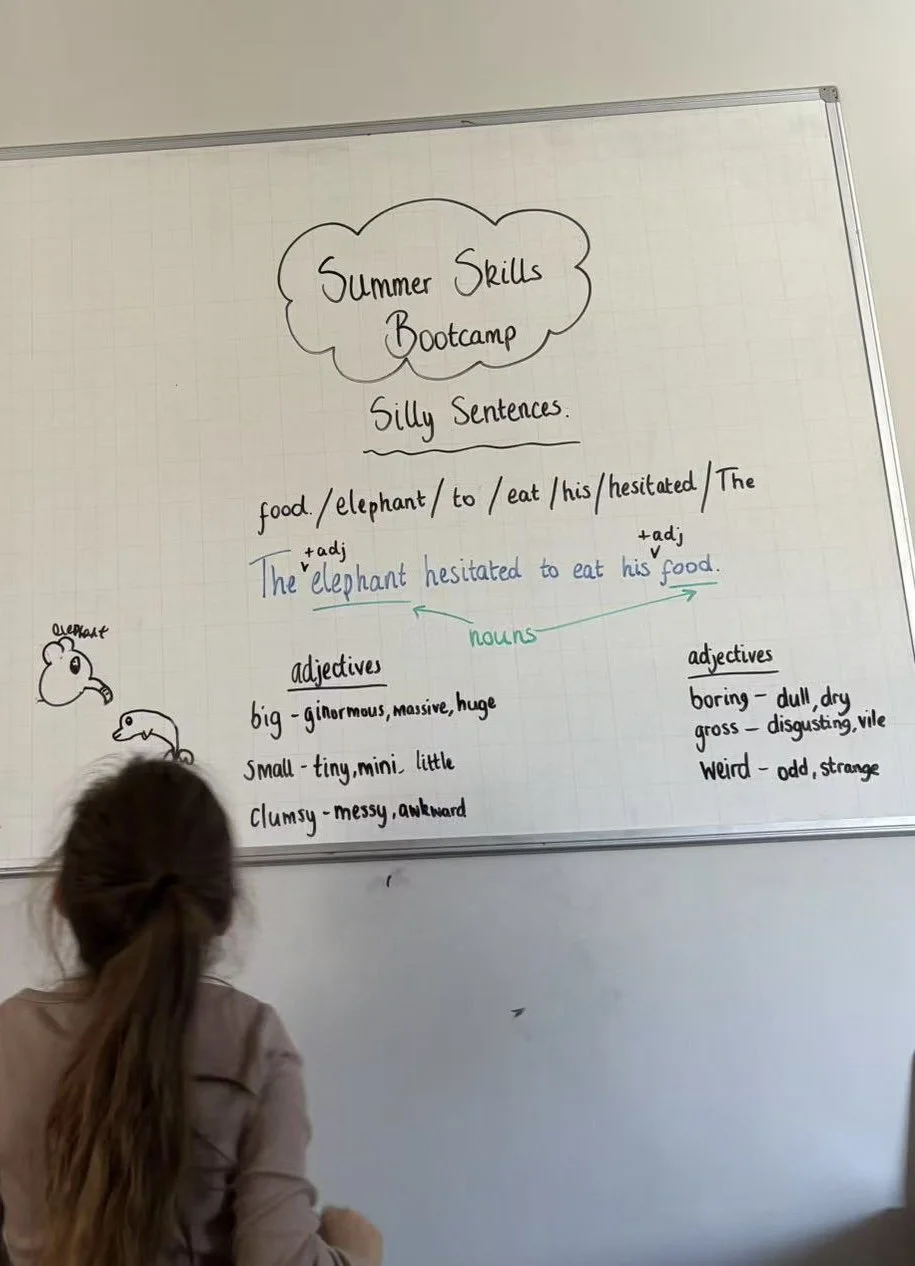 Summer Skills
Bootcamp
Silly Sentences.
food. / elephant / to / eat / his / hesitated / The
+adj +adj
The elephant hesitated to eat his food.
nouns
elephant
adjectives
big - ginormous, massive, huge
small - tiny, mini, little
clumsy - messy, awkward
adjectives
boring - dull, dry
gross - disgusting, vile
weird - odd, strange